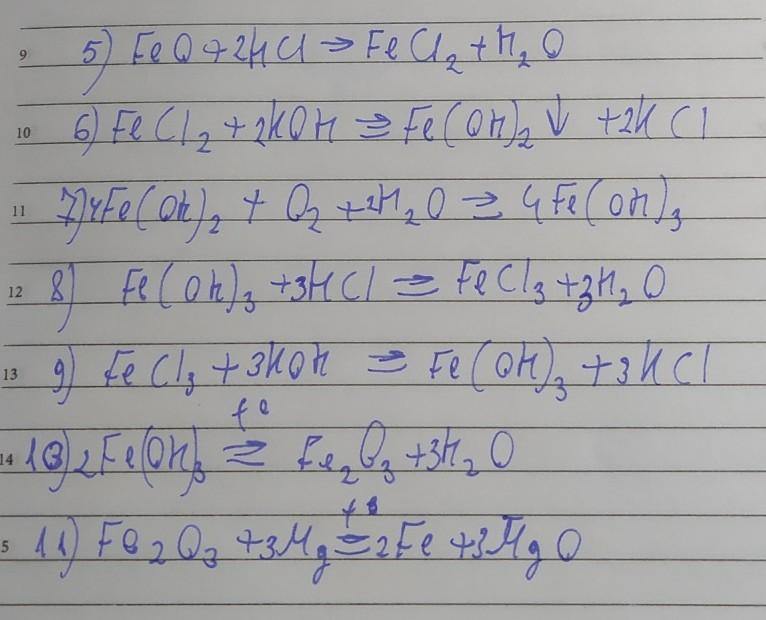 9 5) FeO + 2HCl → FeCl₂ + H₂O
10 6) FeCl₂ + 2KOH = Fe(OH)₂↓ + 2KCl
11 7) 4Fe(OH)₂ + O₂ + 2H₂O = 4Fe(OH)₃
12 8) Fe(OH)₃ + 3HCl = FeCl₃ + 3H₂O
13 9) FeCl₃ + 3KOH = Fe(OH)₃ + 3KCl
t°
14 10) 2Fe(OH)₃ = Fe₂O₃ + 3H₂O
t°
5 11) Fe₂O₃ + 3Mg = 2Fe + 3MgO